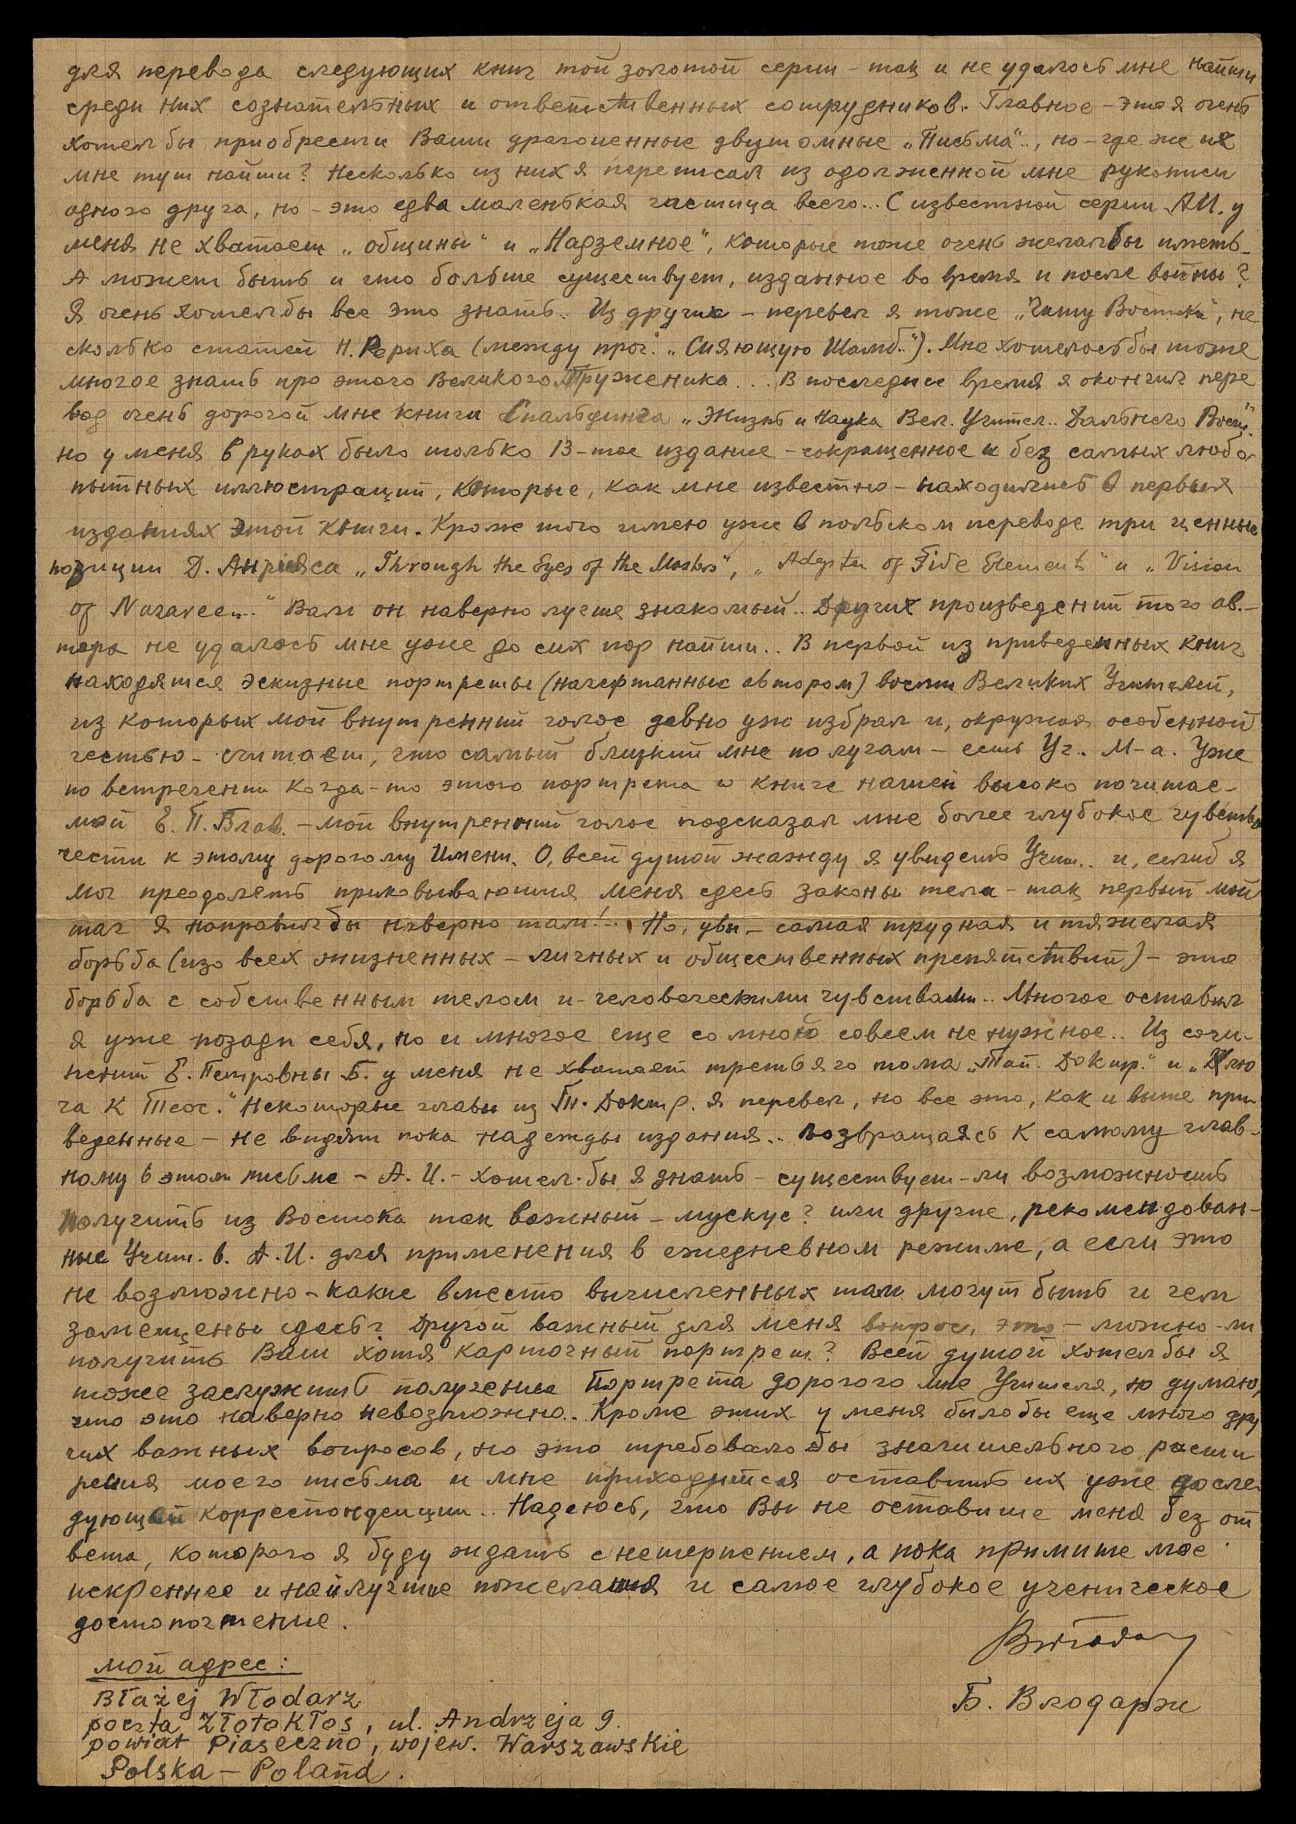 для перевода следующих книг той золотой серии – так и не удалось мне найти
среди них сознательных и ответственных сотрудников. Главное – это я очень
хотел бы приобрести Ваши драгоценные двутомные „Письма“.., но – где же их
мне тут найти? Несколько из них я переписал из одолженной мне рукописи
одного друга, но – это едва маленькая частица всего... С известной серии А.И. у
меня не хватает „общины“ и „Надземное“, которые тоже очень желал бы иметь.
А может быть и что больше существует, изданное во время и после войны?
Я очень хотел бы все это знать.. Из других – перевел я тоже „Чашу Востока“, не
сколько статей Н. Рериха (между проч. „Сияющую Шамб..“). Мне хотелось бы тоже
многое знать про этого Великого Труженика... В последнее время я окончил пере
вод очень дорогой мне книги Спальдинга „Жизнь и Наука Вел. Учител.. Дальнего Вост.“
но у меня в руках было только 13-тое издание – сокращенное и без самых любо
пытных иллюстраций, которые, как мне известно – находились в первых
изданиях этой книги. Кроме того имею уже в польском переводе три ценные
позиции Д. Анриаса „Through the Eyes of the Masters“, „Adepts of Five Elements“ и „Vision
of Nazareen..“ Вам он наверно лучше знакомый.. Других произведений того ав.–
тора не удалось мне уже до сих пор найти.. В первой из приведенных книг
находятся эскизные портреты (начертанные автором) восьми Великих Учителей,
из которых мой внутренний голос давно уж избрал и, окружая особенной
честью – считает, что самый близкий мне по лучам – есть Уч. М-а. Уже
по встречении когда-то этого портрета в книге нашей высоко почитае–
мой Е. П. Блав. – мой внутренний голос подсказал мне более глубокое чувство
чести к этому дорогому Имени. О, всей душой жажду я увидеть Учит.. и, если б я
мог преодолеть приковывающия меня сдесь законы тела – так первый мой
шаг я направил бы наверно там!.. Но, увы – самая трудная и тяжелая
борьба (изо всех жизненных – личных и общественных препятствий) – это
борьба с собственным телом и – человеческими чувствами.. Многое оставил
я уже позади себя, но и многое еще со мною совсем не нужное.. Из сочи–
нений Е. Петровны Б. у меня не хватает третьяго тома „Тай. Доктр.“ и „Клю
ча к Теос.“ Некоторые главы из Т. Доктр. я перевел, но все это, как и выше при
веденные – не видят пока надежды издания.. Возвращаясь к самому глав–
ному в этом письме – А. И. – хотел-бы я знать – существует-ли возможность
получить из Востока так важный – мускус? или другие, рекомендован–
ные Учит. в. А. И. для применения в ежедневном режиме, а если это
не возможно – какие вместо вычисленных там могут быть и чем
замещены сдесь? Другой важный для меня вопрос, это – можно-ли
получить Ваш хотя карточный портрет? Всей душой хотел бы я
тоже заслужить получение Портрета дорогого мне Учителя, но думаю,
что это наверно невозможно.. Кроме этих у меня было бы еще много дру
гих важных вопросов, но это требовало бы значительного расши
рения моего письма и мне приходится оставить их уже до сле–
дующей корреспонденции.. Надеюсь, что Вы не оставите меня без от
вета, которого я буду ждать с нетерпением, а пока примите мое
искреннее и найлучшие пожелания и самое глубокое ученическое
достопочтение.
Б. Влодарж
мой адрес:
Błażej Włodarz
poczta Złotokłos, ul. Andrzeja 9.
powiat Piaseczno, wojew. Warszawskie
Polska – Poland.